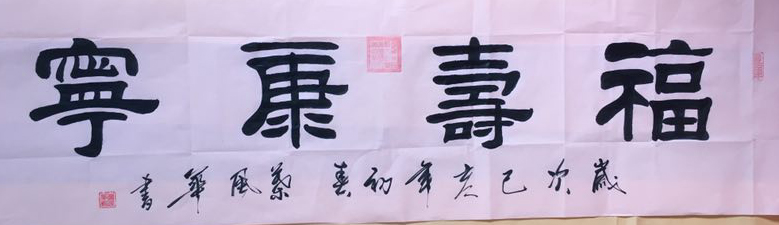 福壽康寧
歲次己亥年初春蔡風華書